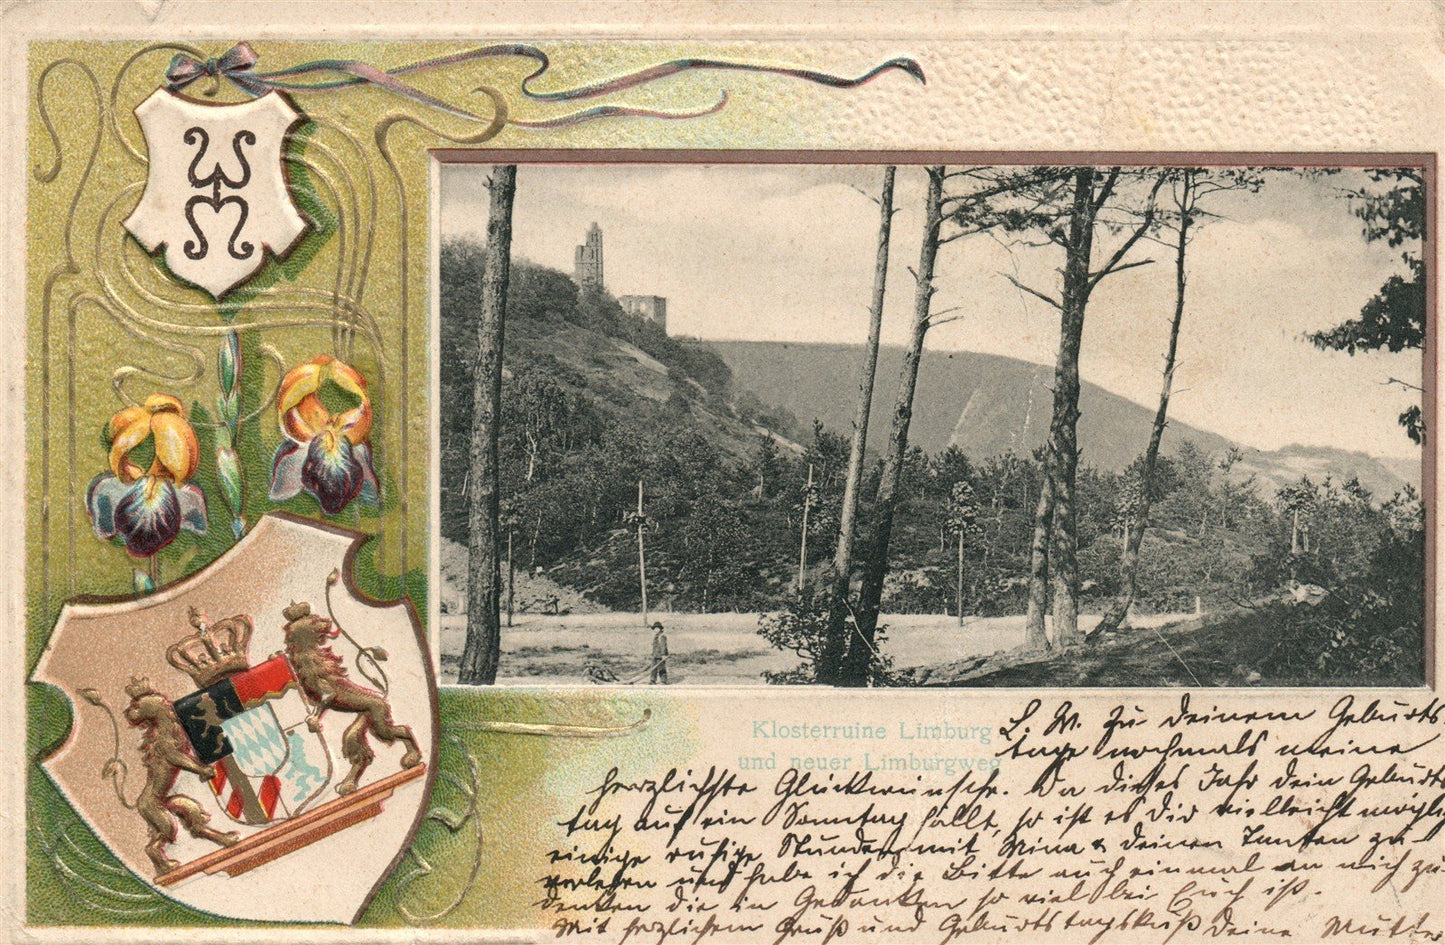 Klosterruine Limburg
und neuer Limburgweg
L. M. Zu deinem Geburts
tage nochmals meine
herzlichste Glückwünsche. Da dieses Jahr dein Geburts
tag auf ein Sonntag fällt, so ist es dir vielleicht möglich
einige ruhige Stunden mit Mina & deinen Tanten zu
verleben und habe ich die Bitte auch einmal an mich zu
denken die in Gedanken so viel bei Euch ist.
Mit herzlichem Gruß und Geburtstagskuß Deine Mutter